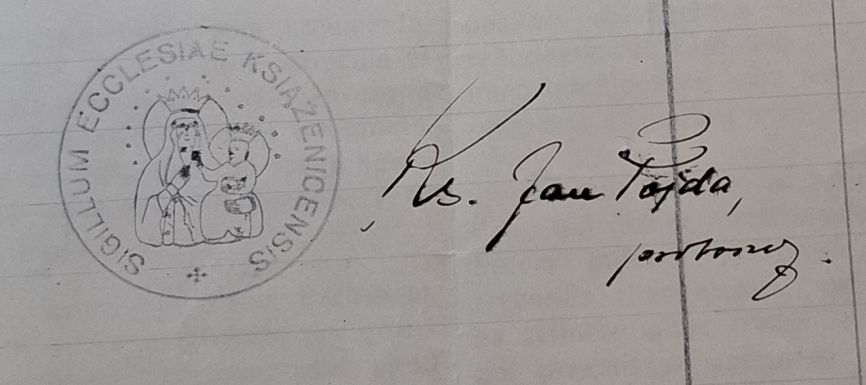 SIGILLUM ECCLESIAE KSIĄŻENICENSIS
Ks. Jan Pojda,
proboszcz.